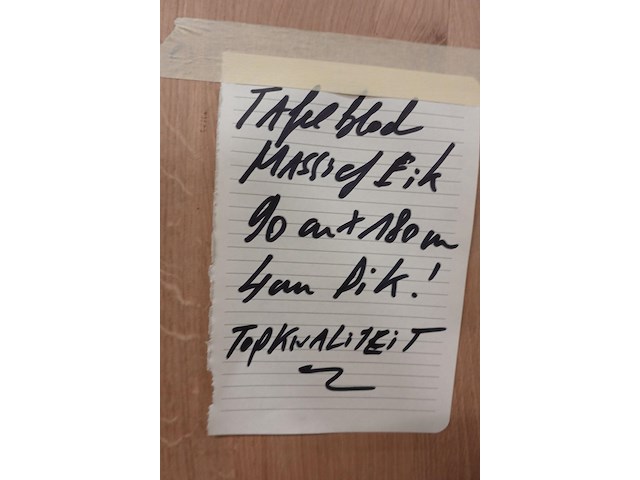 TAfelblad
MASSief Eik
90 cm x 180 cm
4cm Dik!
TOPKWALITEIT